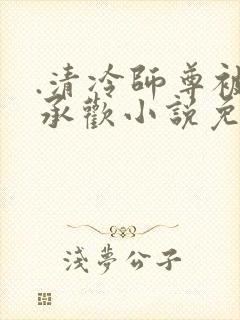 .清冷師尊被
承歡小說免
淺夢公子